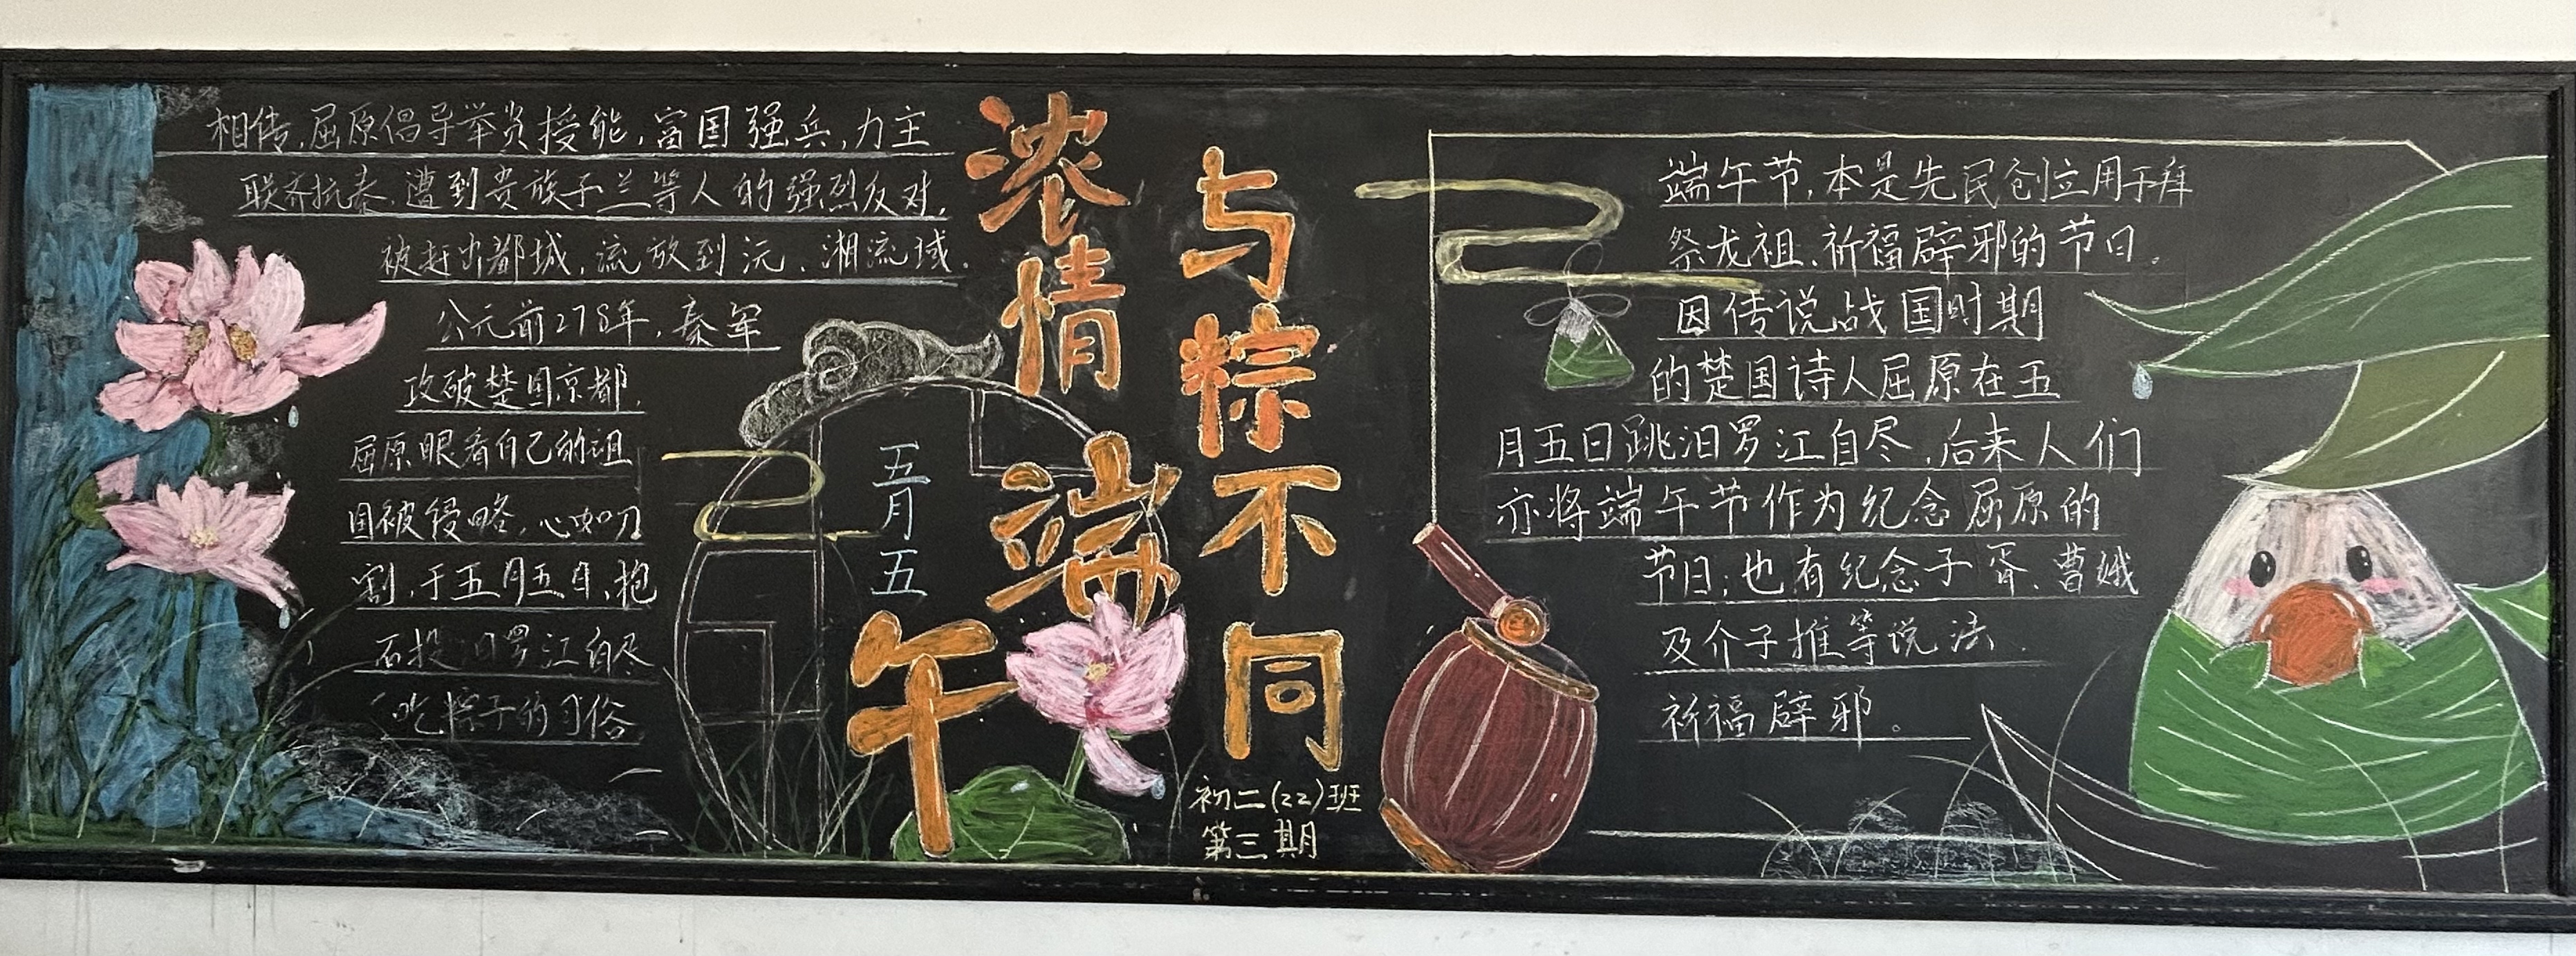 相传,屈原倡导举贤授能,富国强兵,力主
联齐抗秦,遭到贵族子兰等人的强烈反对,
被赶出都城,流放到沅、湘流域.
公元前278年,秦军
攻破楚国京都,
屈原眼看自己的祖
国被侵略,心如刀
割,于五月五日,抱
石投汨罗江自尽
吃粽子的习俗
浓情
端
午
五月五
与粽不同
初二(22)班
第三期
端午节,本是先民创立用于拜
祭龙祖、祈福辟邪的节日。
因传说战国时期
的楚国诗人屈原在五
月五日跳汨罗江自尽,后来人们
亦将端午节作为纪念屈原的
节日;也有纪念子胥、曹娥
及介子推等说法.
祈福辟邪。